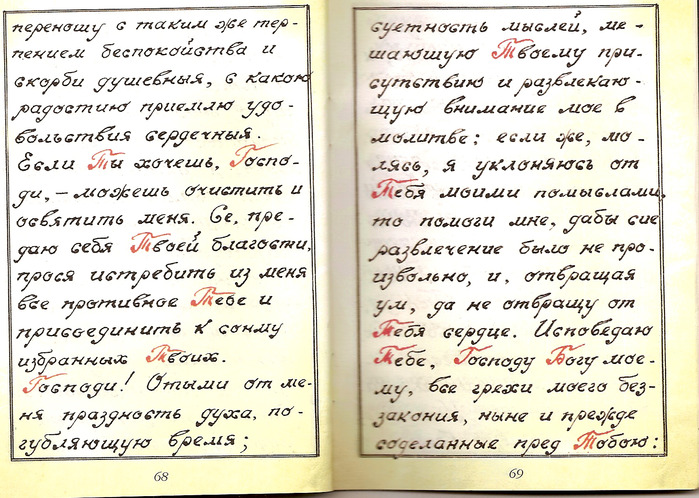 переношу с таким же тер-
пением беспокойства и
скорби душевныя, с какою
радостию приемлю удо-
вольствия сердечныя.
Если Ты хочешь, Госпо-
ди, – можешь очистить и
освятить меня. Се, пре-
даю себя Твоей благости,
прося истребить из меня
все противное Тебе и
присоединить к сонму
избранных Твоих.
Господи! Отыми от ме-
ня праздность духа, по-
губляющую время;
68
суетность мыслей, ме-
шающую Твоему при-
сутствию и развлекаю-
щую внимание мое в
молитве: если же, мо-
лясь, я уклоняюсь от
Тебя моими помыслами,
то помоги мне, дабы сие
развлечение было не про-
извольно, и, отвращая
ум, да не отвращу от
Тебя сердце. Исповедаю
Тебе, Господу Богу мое-
му, все грехи моего без-
закония, ныне и прежде
соделанные пред Тобою:
69